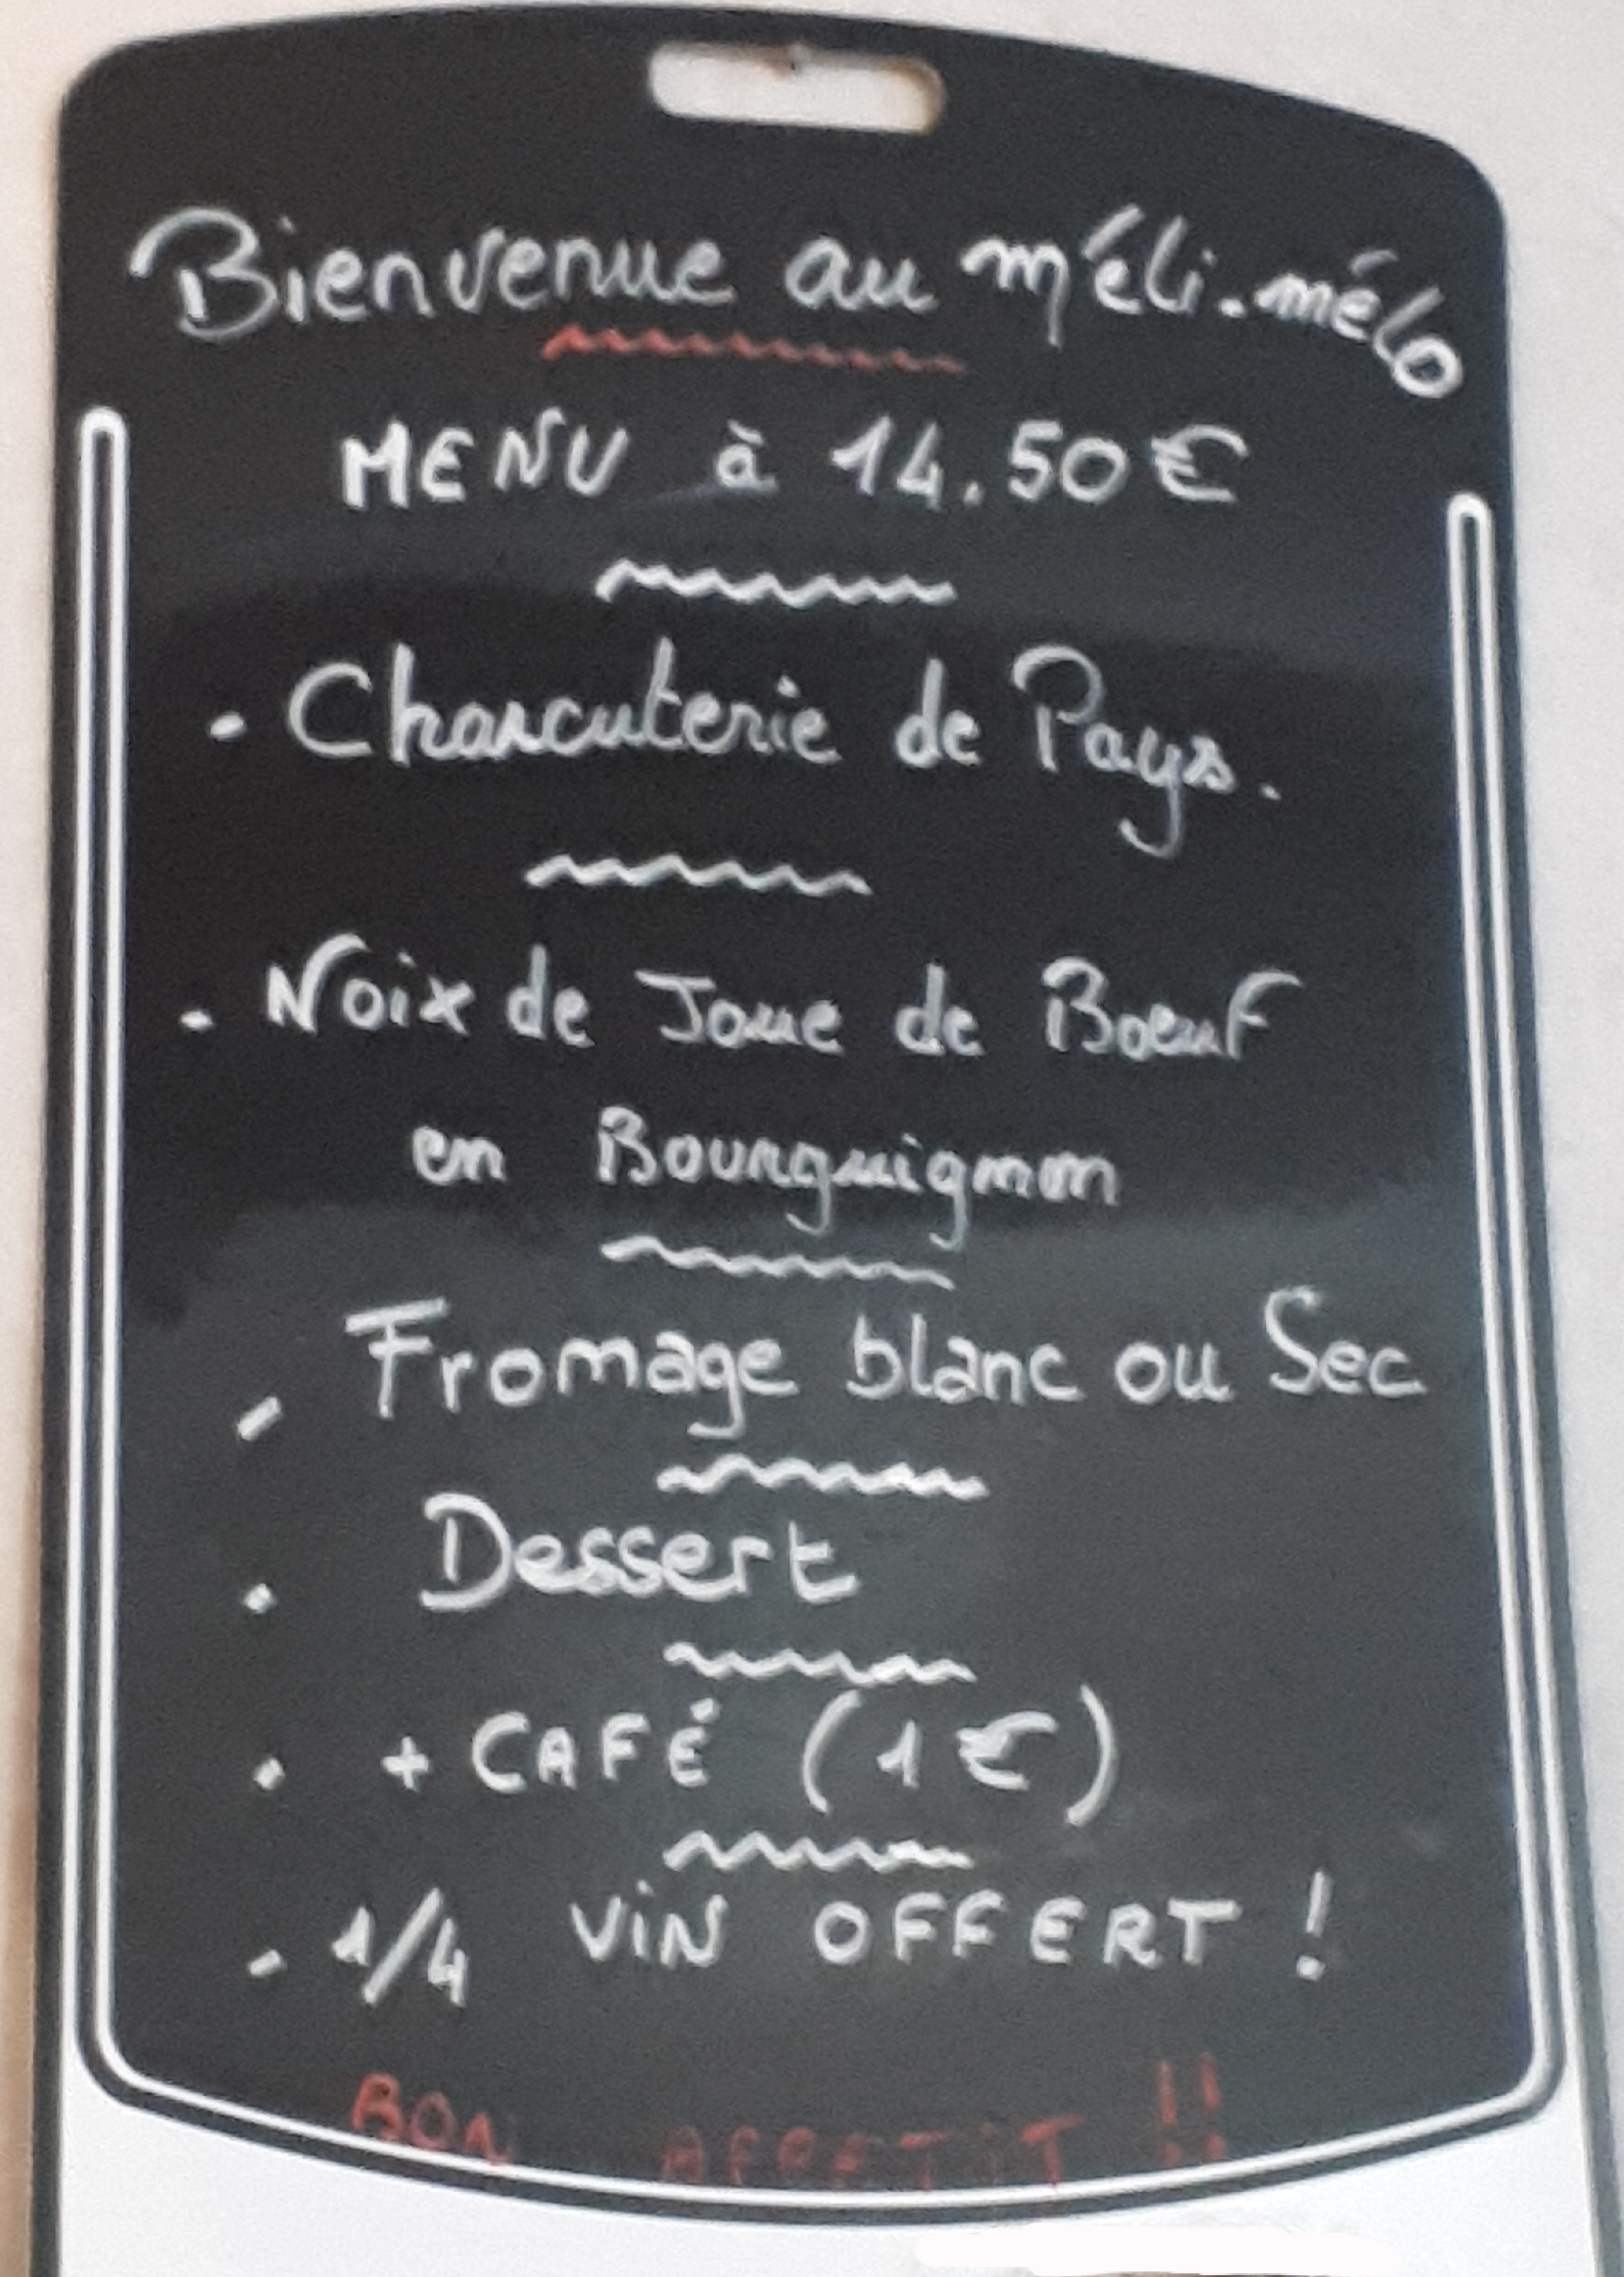 Bienvenue au méli-mélo
MENU à 14.50€
• Charcuterie de Pays.
• Noix de Joue de Boeuf
en Bourguignon
• Fromage blanc ou Sec
• Dessert
• + CAFÉ (1€)
• 1/4 ViN OFFERT !
BON APPETIT !!